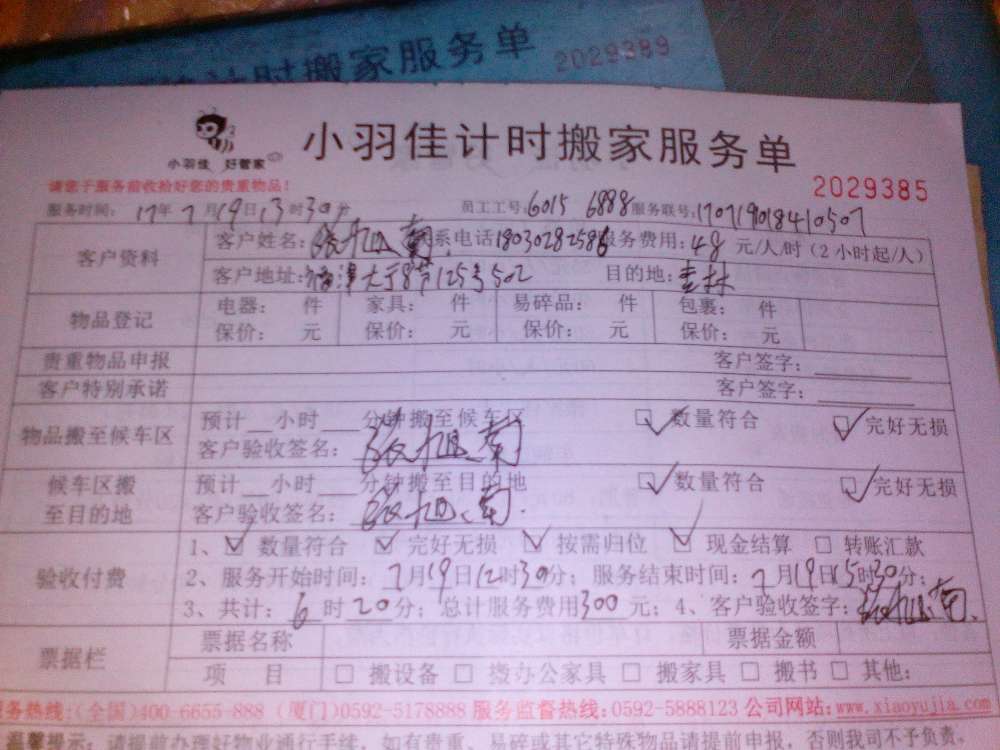 计时搬家服务单
2029389
小羽佳 好管家
小羽佳计时搬家服务单
2029385
请您于服务前收拾好您的贵重物品!
服务时间: 17年7月19日13时30分 员工工号:6015 6888 服务联号:170719018410507
客户资料
客户姓名: 系电话 服务费用:48元/人/时(2小时起/人)
客户地址: 125号502 目的地:
物品登记
电器: 件 家具: 件 易碎品: 件 包裹: 件
保价: 元 保价: 元 保价: 元 保价: 元
贵重物品申报 客户签字:
客户特别承诺 客户签字:
物品搬至候车区
预计__小时__分钟搬至候车区 ☑数量符合 ☑完好无损
客户验收签名:
候车区搬至目的地
预计__小时__分钟搬至目的地 ☑数量符合 ☑完好无损
客户验收签名:
验收付费
1、☑数量符合 ☑完好无损 ☑按需归位 ☑现金结算 □转账汇款
2、服务开始时间:7月19日12时30分;服务结束时间:7月19日15时30分;
3、共计:6时20分;总计服务费用300元;4、客户验收签字:
票据栏
票据名称 票据金额
项 目 □搬设备 □搬办公家具 □搬家具 □搬书 □其他:
服务热线:(全国)400-6655-888 (厦门)0592-5178888 服务监督热线:0592-5888123 公司网站:www.xiaoyujia.com
温馨提示:请提前办理好物业通行手续,如有贵重、易碎或其它特殊物品请提前申报,否则我司不予负责。